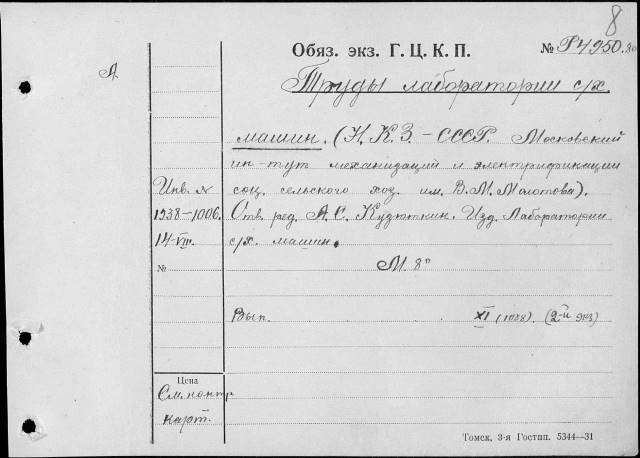 8
Обяз. экз. Г. Ц. К. П.
№ Р4950
А
Труды лаборатории с/х.
машин. (Н.К.З. – СССР. Московский
ин-тут механизаций и электрификации
соц. сельского хоз. им. В.М. Молотова).
Отв. ред. А.С. Кузюткин. Изд. Лаборатории
с/х. машин.
М. 8°
Инв. №
1238–1006.
14–VIII.
№
Вып. XI (1938). (2-й экз)
Цена
См. контр
карт.
Томск, 3-я Гостип. 5344—31